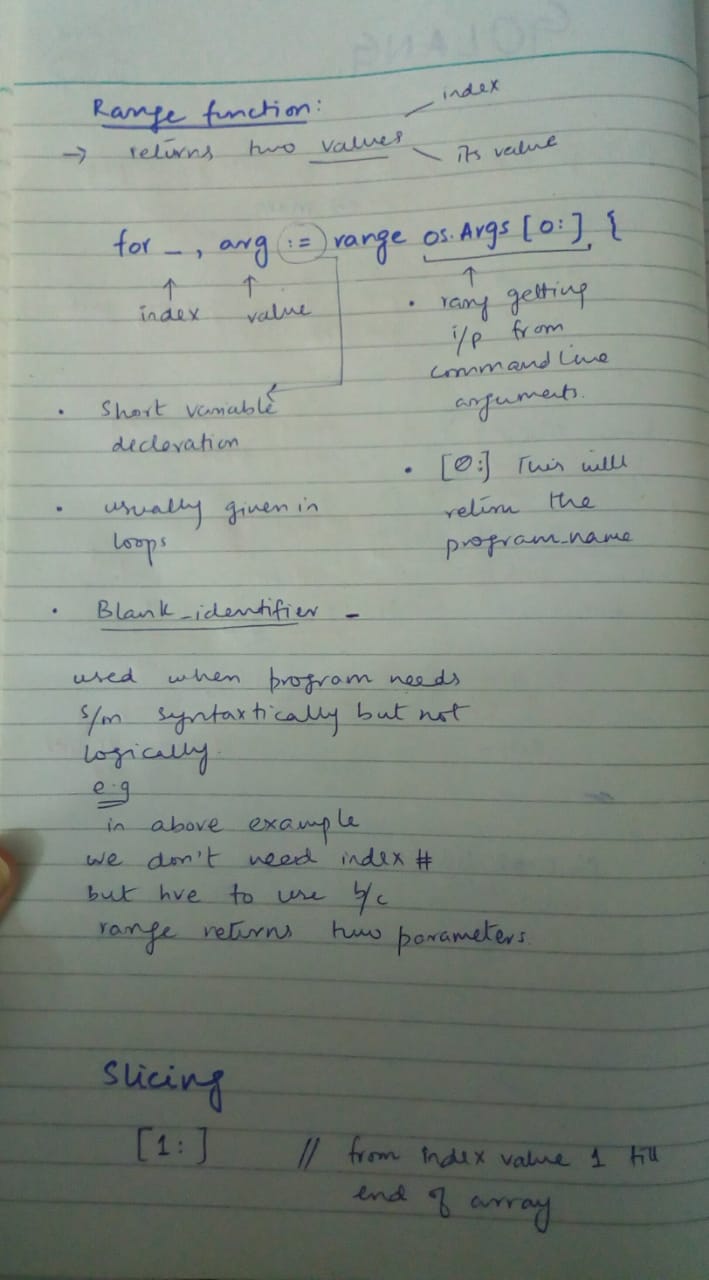 GOLANG
Range function:
index
→ returns two values
its value
for _, arg := range os.Args [0:] {
↑ index ↑ value
• Short variable
decleration
• usually given in
loops
↑
• rang getting
i/p from
command line
arguments.
• [0:] This will
return the
program_name
• Blank_identifier _
used when program needs
s/m syntaxtically but not
logically.
e.g
in above example
we don't need index #
but hve to use b/c
range returns two parameters.
Slicing
[1:] // from index value 1 till
end of array